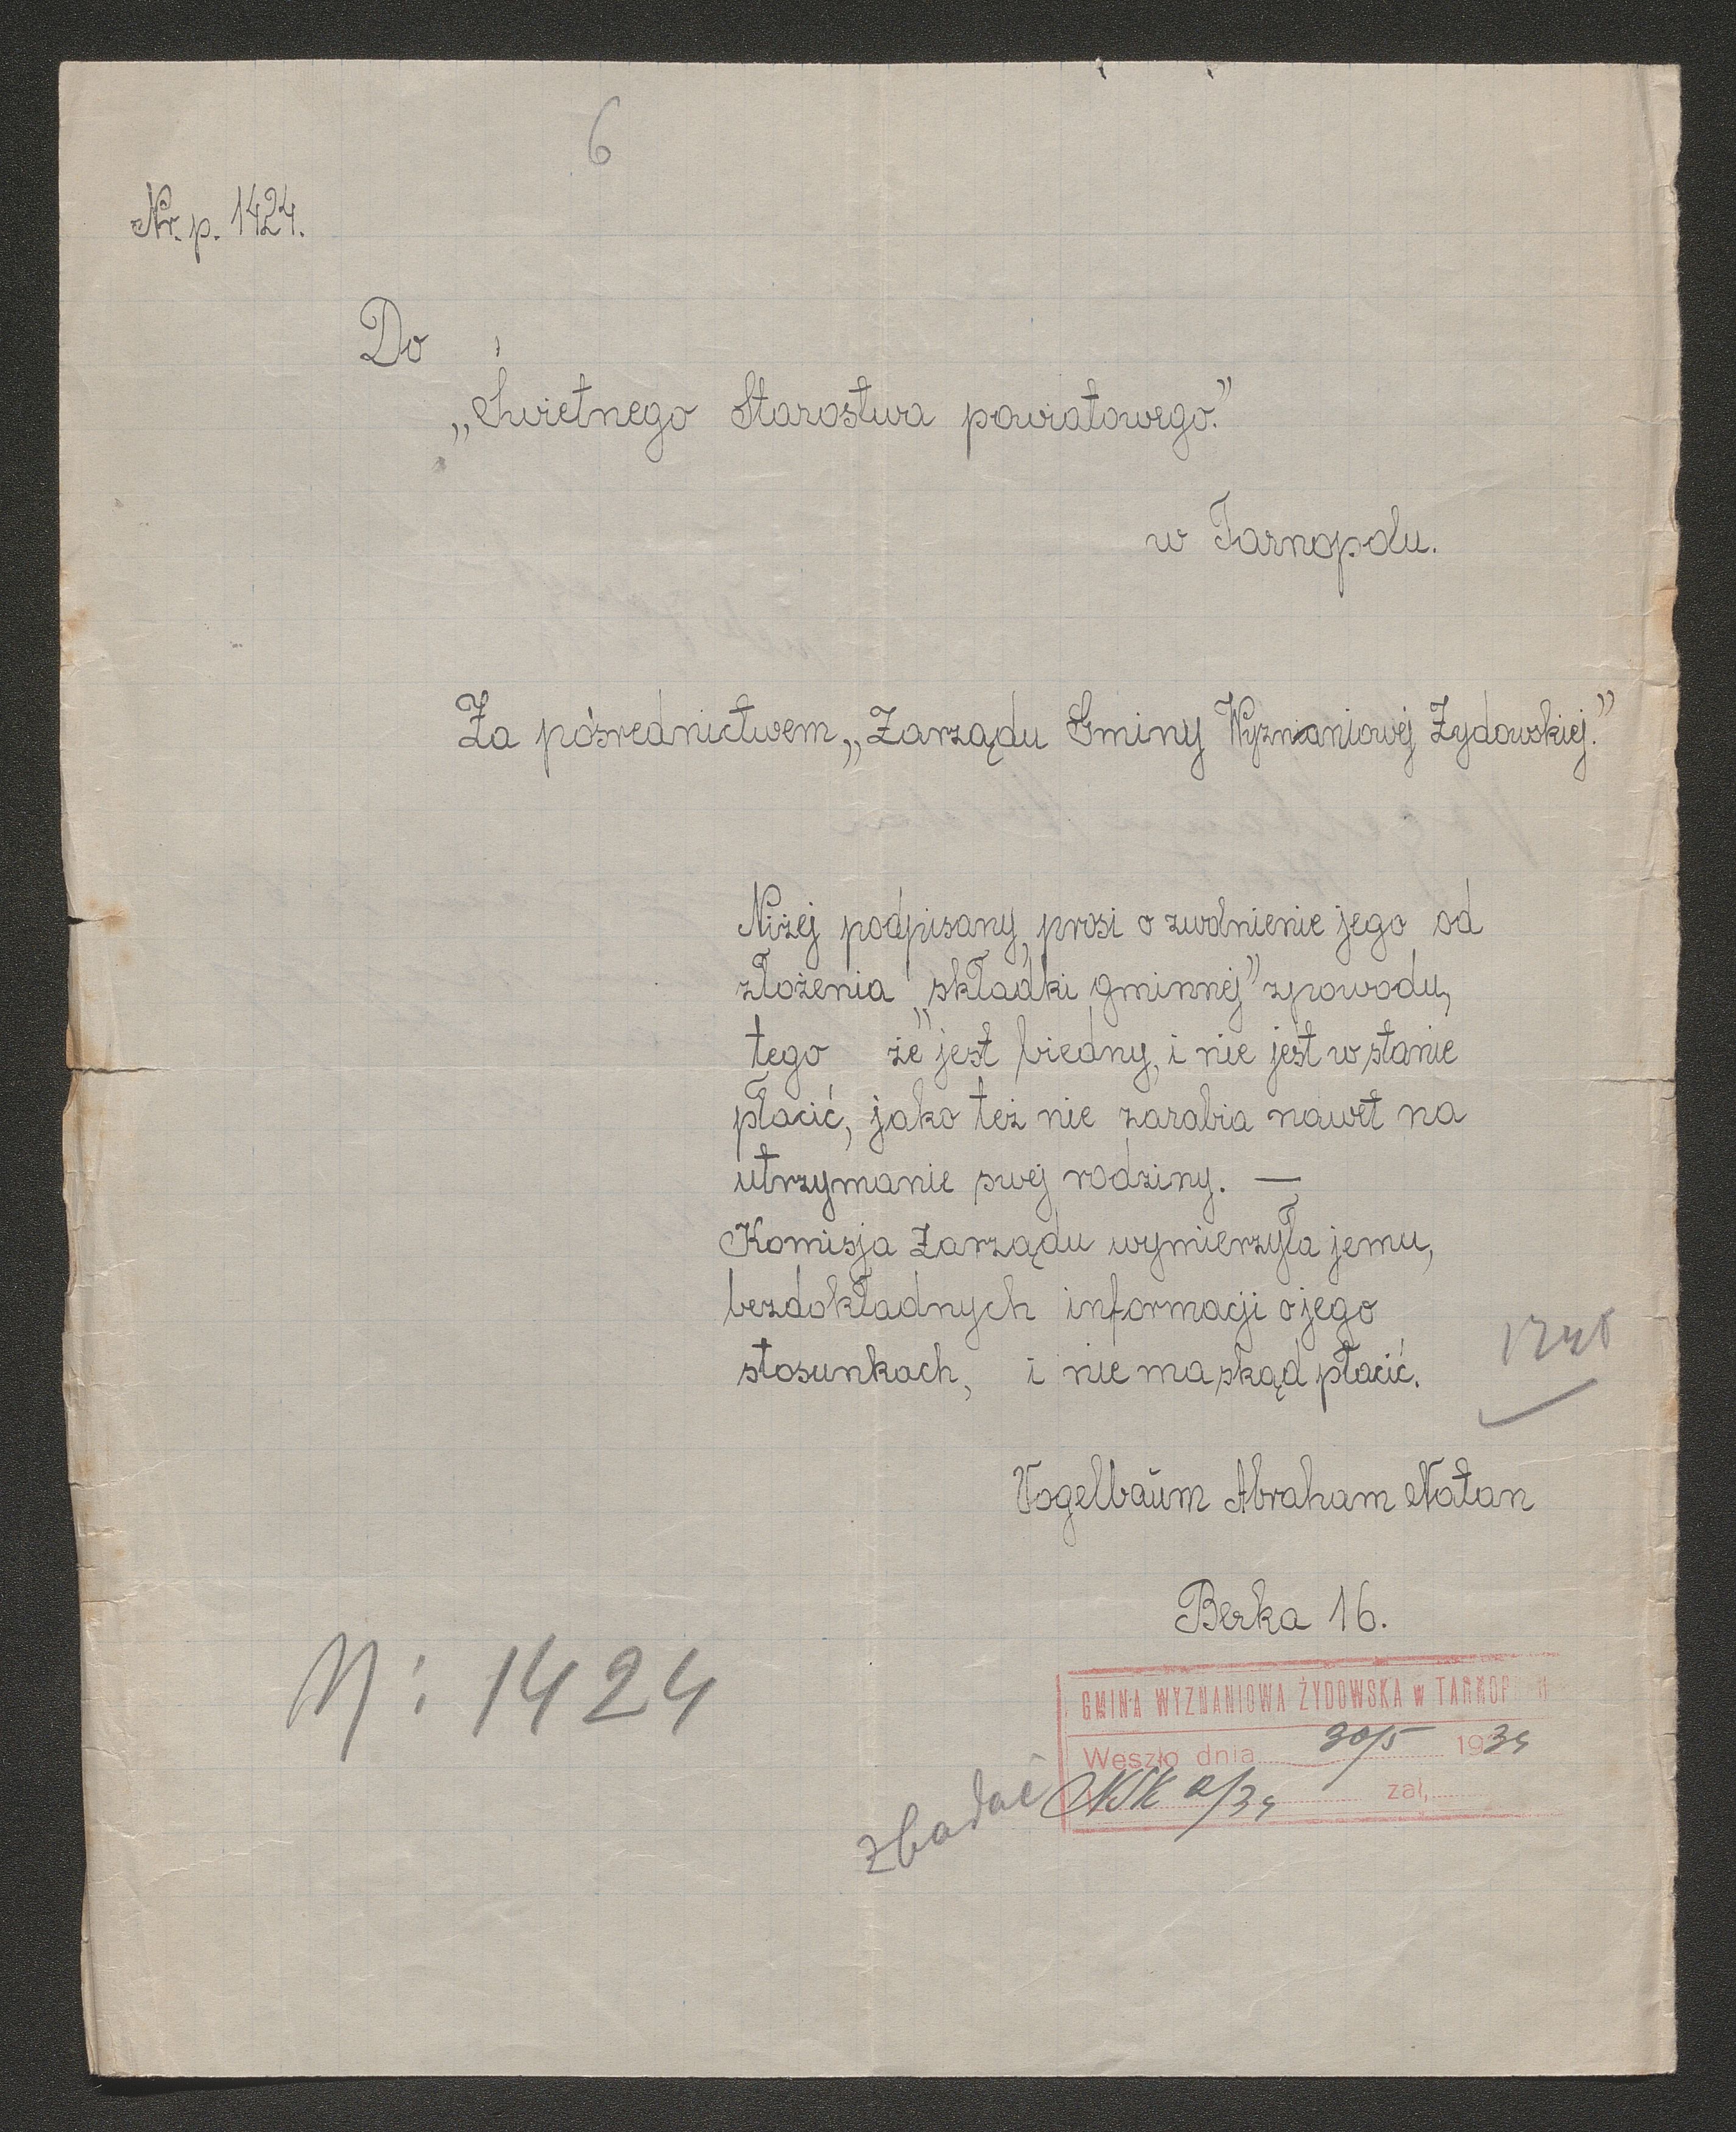 6
Nr. p. 1424.
Do
„Świetnego Starostwa powiatowego."
w Tarnopolu.
Za pośrednictwem „Zarządu Gminy Wyznaniowej Żydowskiej."
Niżej podpisany, prosi o zwolnienie jego od
złożenia „składki gminnej" zpowodu,
tego że jest biedny, i nie jest w stanie
płacić, jako też nie zarabia nawet na
utrzymanie swej rodziny. —
Komisja Zarządu wymierzyła jemu,
bezdokładnych informacji o jego
stosunkach, i nie ma skąd płacić.
Vogelbaŭm Abraham Natan
Berka 16.
N: 1424
GMINA WYZNANIOWA ŻYDOWSKA w TARNOP
Weszło dnia 30/5 1934
zał,
zbadać